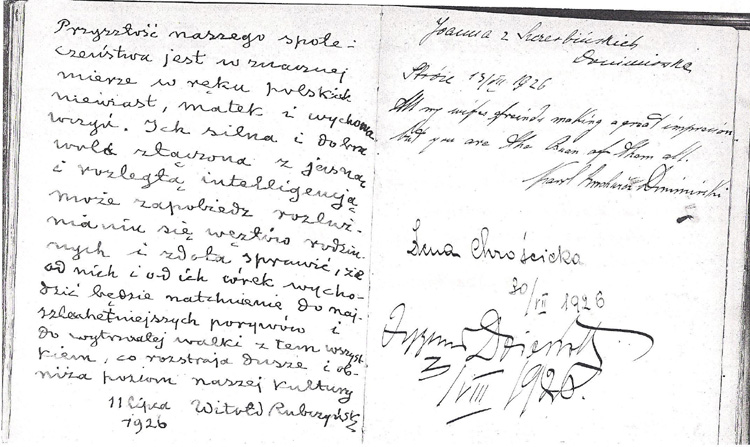 Przyszłość naszego społe-
czeństwa jest w znacznej
mierze w ręku polskich
niewiast, matek i wychowa-
wczyń. Ich silna i dobra
wola złączona z jasną
i rozległą intelligencją
może zapobiedz rozluź-
nianiu się węzłów rodzin-
nych i zdoła sprawić, że
od nich i od ich córek wycho-
dzić będzie natchnienie do naj-
szlachetniejszych porywów i
do wytrwałej walki z tem wszyst-
kiem, co rozstraja dusze i ob-
niża poziom naszej kultury
11 lipca Witold Rubczyński
1926
Joanna z Szczerbińskich
Stróże 13/VII 1926
All my wifes freinds making a great impression
but you are the Quen of them all.
Karol
Lena Chrościcka
20/VII 1926
3/VIII 1926.